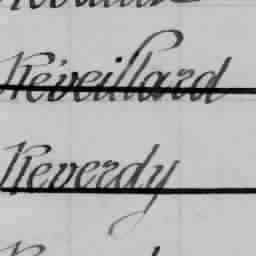 Réveillard
Reverdy